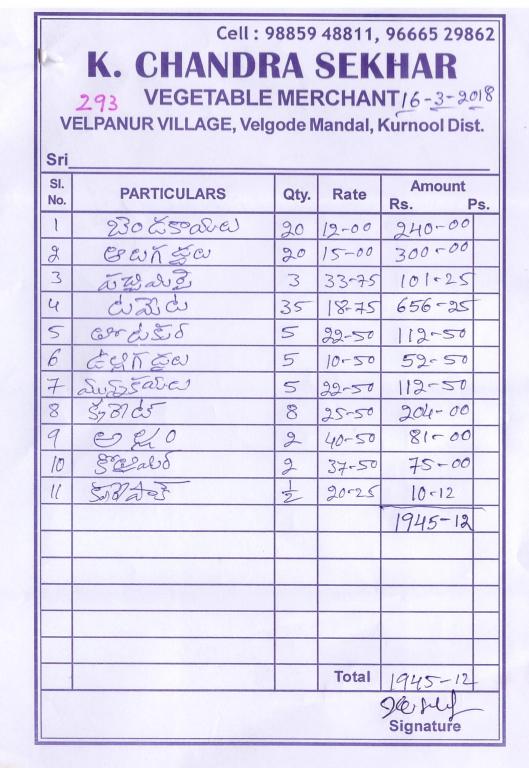 Cell : 98859 48811, 96665 29862
K. CHANDRA SEKHAR
293 VEGETABLE MERCHANT 16-3-2018
VELPANUR VILLAGE, Velgode Mandal, Kurnool Dist.
Sri
Sl. No. PARTICULARS Qty. Rate Amount Rs. Ps.
1 బెండకాయలు 20 12-00 240-00
2 ఆలుగడ్డలు 20 15-00 300-00
3 పచ్చిమిర్చి 3 33-75 101-25
4 టమోట 35 18-75 656-25
5 తోటకూర 5 22-50 112-50
6 ఉల్లిగడ్డలు 5 10-50 52-50
7 మునక్కాయలు 5 22-50 112-50
8 క్యారెట్ 8 25-50 204-00
9 అల్లం 2 40-50 81-00
10 2 37-50 75-00
11 ½ 20-25 10-12
1945-12
Total 1945-12
Signature